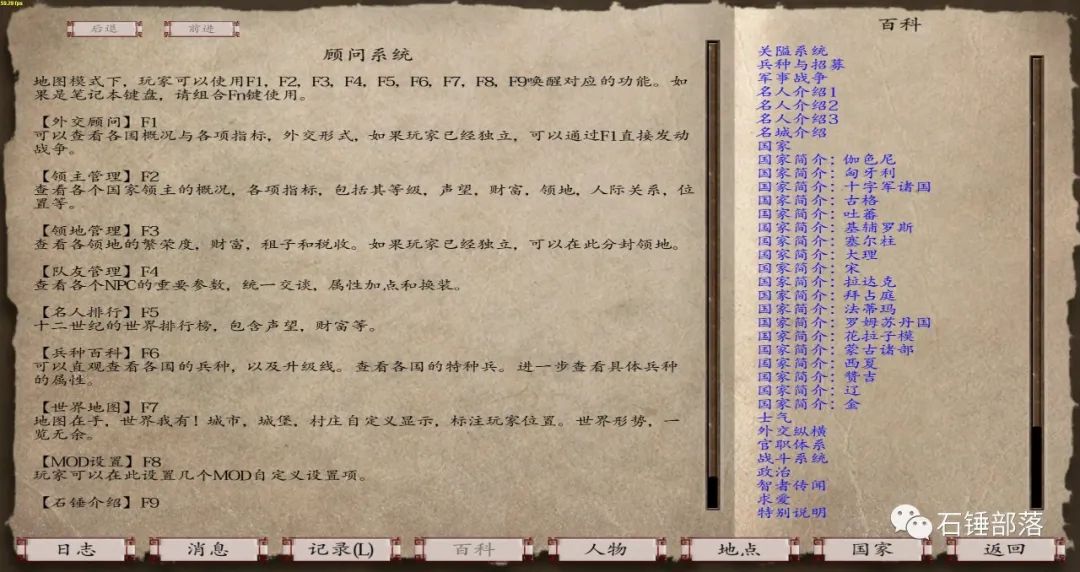 59.29 fps
后退
前进
顾问系统
地图模式下，玩家可以使用F1, F2, F3, F4, F5, F6, F7, F8, F9唤醒对应的功能。如
果是笔记本键盘，请组合Fn键使用。
【外交顾问】F1
可以查看各国概况与各项指标，外交形式，如果玩家已经独立，可以通过F1直接发动
战争。
【领主管理】F2
查看各个国家领主的概况，各项指标，包括其等级，声望，财富，领地，人际关系，位
置等。
【领地管理】F3
查看各领地的繁荣度，财富，租子和税收。如果玩家已经独立，可以在此分封领地。
【队友管理】F4
查看各个NPC的重要参数，统一交谈，属性加点和换装。
【名人排行】F5
十二世纪的世界排行榜，包含声望，财富等。
【兵种百科】F6
可以直观查看各国的兵种，以及升级线。查看各国的特种兵。进一步查看具体兵种
的属性。
【世界地图】F7
地图在手，世界我有！城市，城堡，村庄自定义显示，标注玩家位置。世界形势，一
览无余。
【MOD设置】F8
玩家可以在此设置几个MOD自定义设置项。
【石锤介绍】F9
百科
关隘系统
兵种与招募
军事战争
名人介绍1
名人介绍2
名人介绍3
名城介绍
国家
国家简介：伽色尼
国家简介：匈牙利
国家简介：十字军诸国
国家简介：古格
国家简介：吐蕃
国家简介：基辅罗斯
国家简介：塞尔柱
国家简介：大理
国家简介：宋
国家简介：拉达克
国家简介：拜占庭
国家简介：法蒂玛
国家简介：罗姆苏丹国
国家简介：花拉子模
国家简介：蒙古诸部
国家简介：西夏
国家简介：赞吉
国家简介：辽
国家简介：金
士气
外交纵横
官职体系
战斗系统
政治
智者传闻
求爱
特别说明
石锤部落
日志
消息
记录(L)
百科
人物
地点
国家
返回